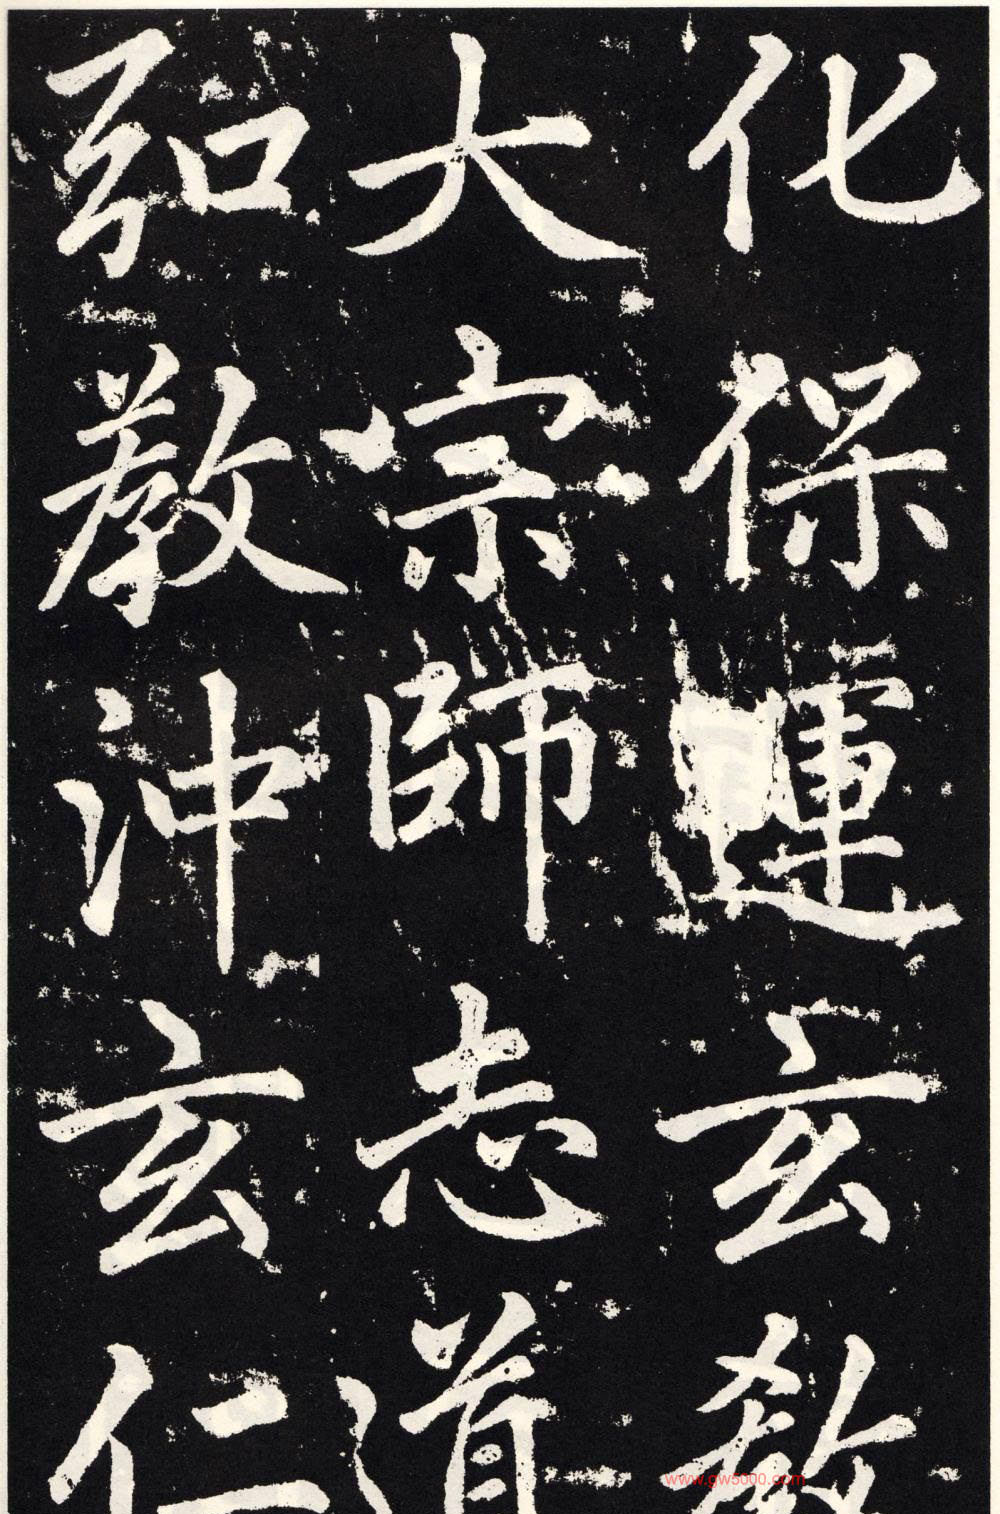 化保運玄教
大宗師志道
弘教沖玄仁
www.gw5000.com